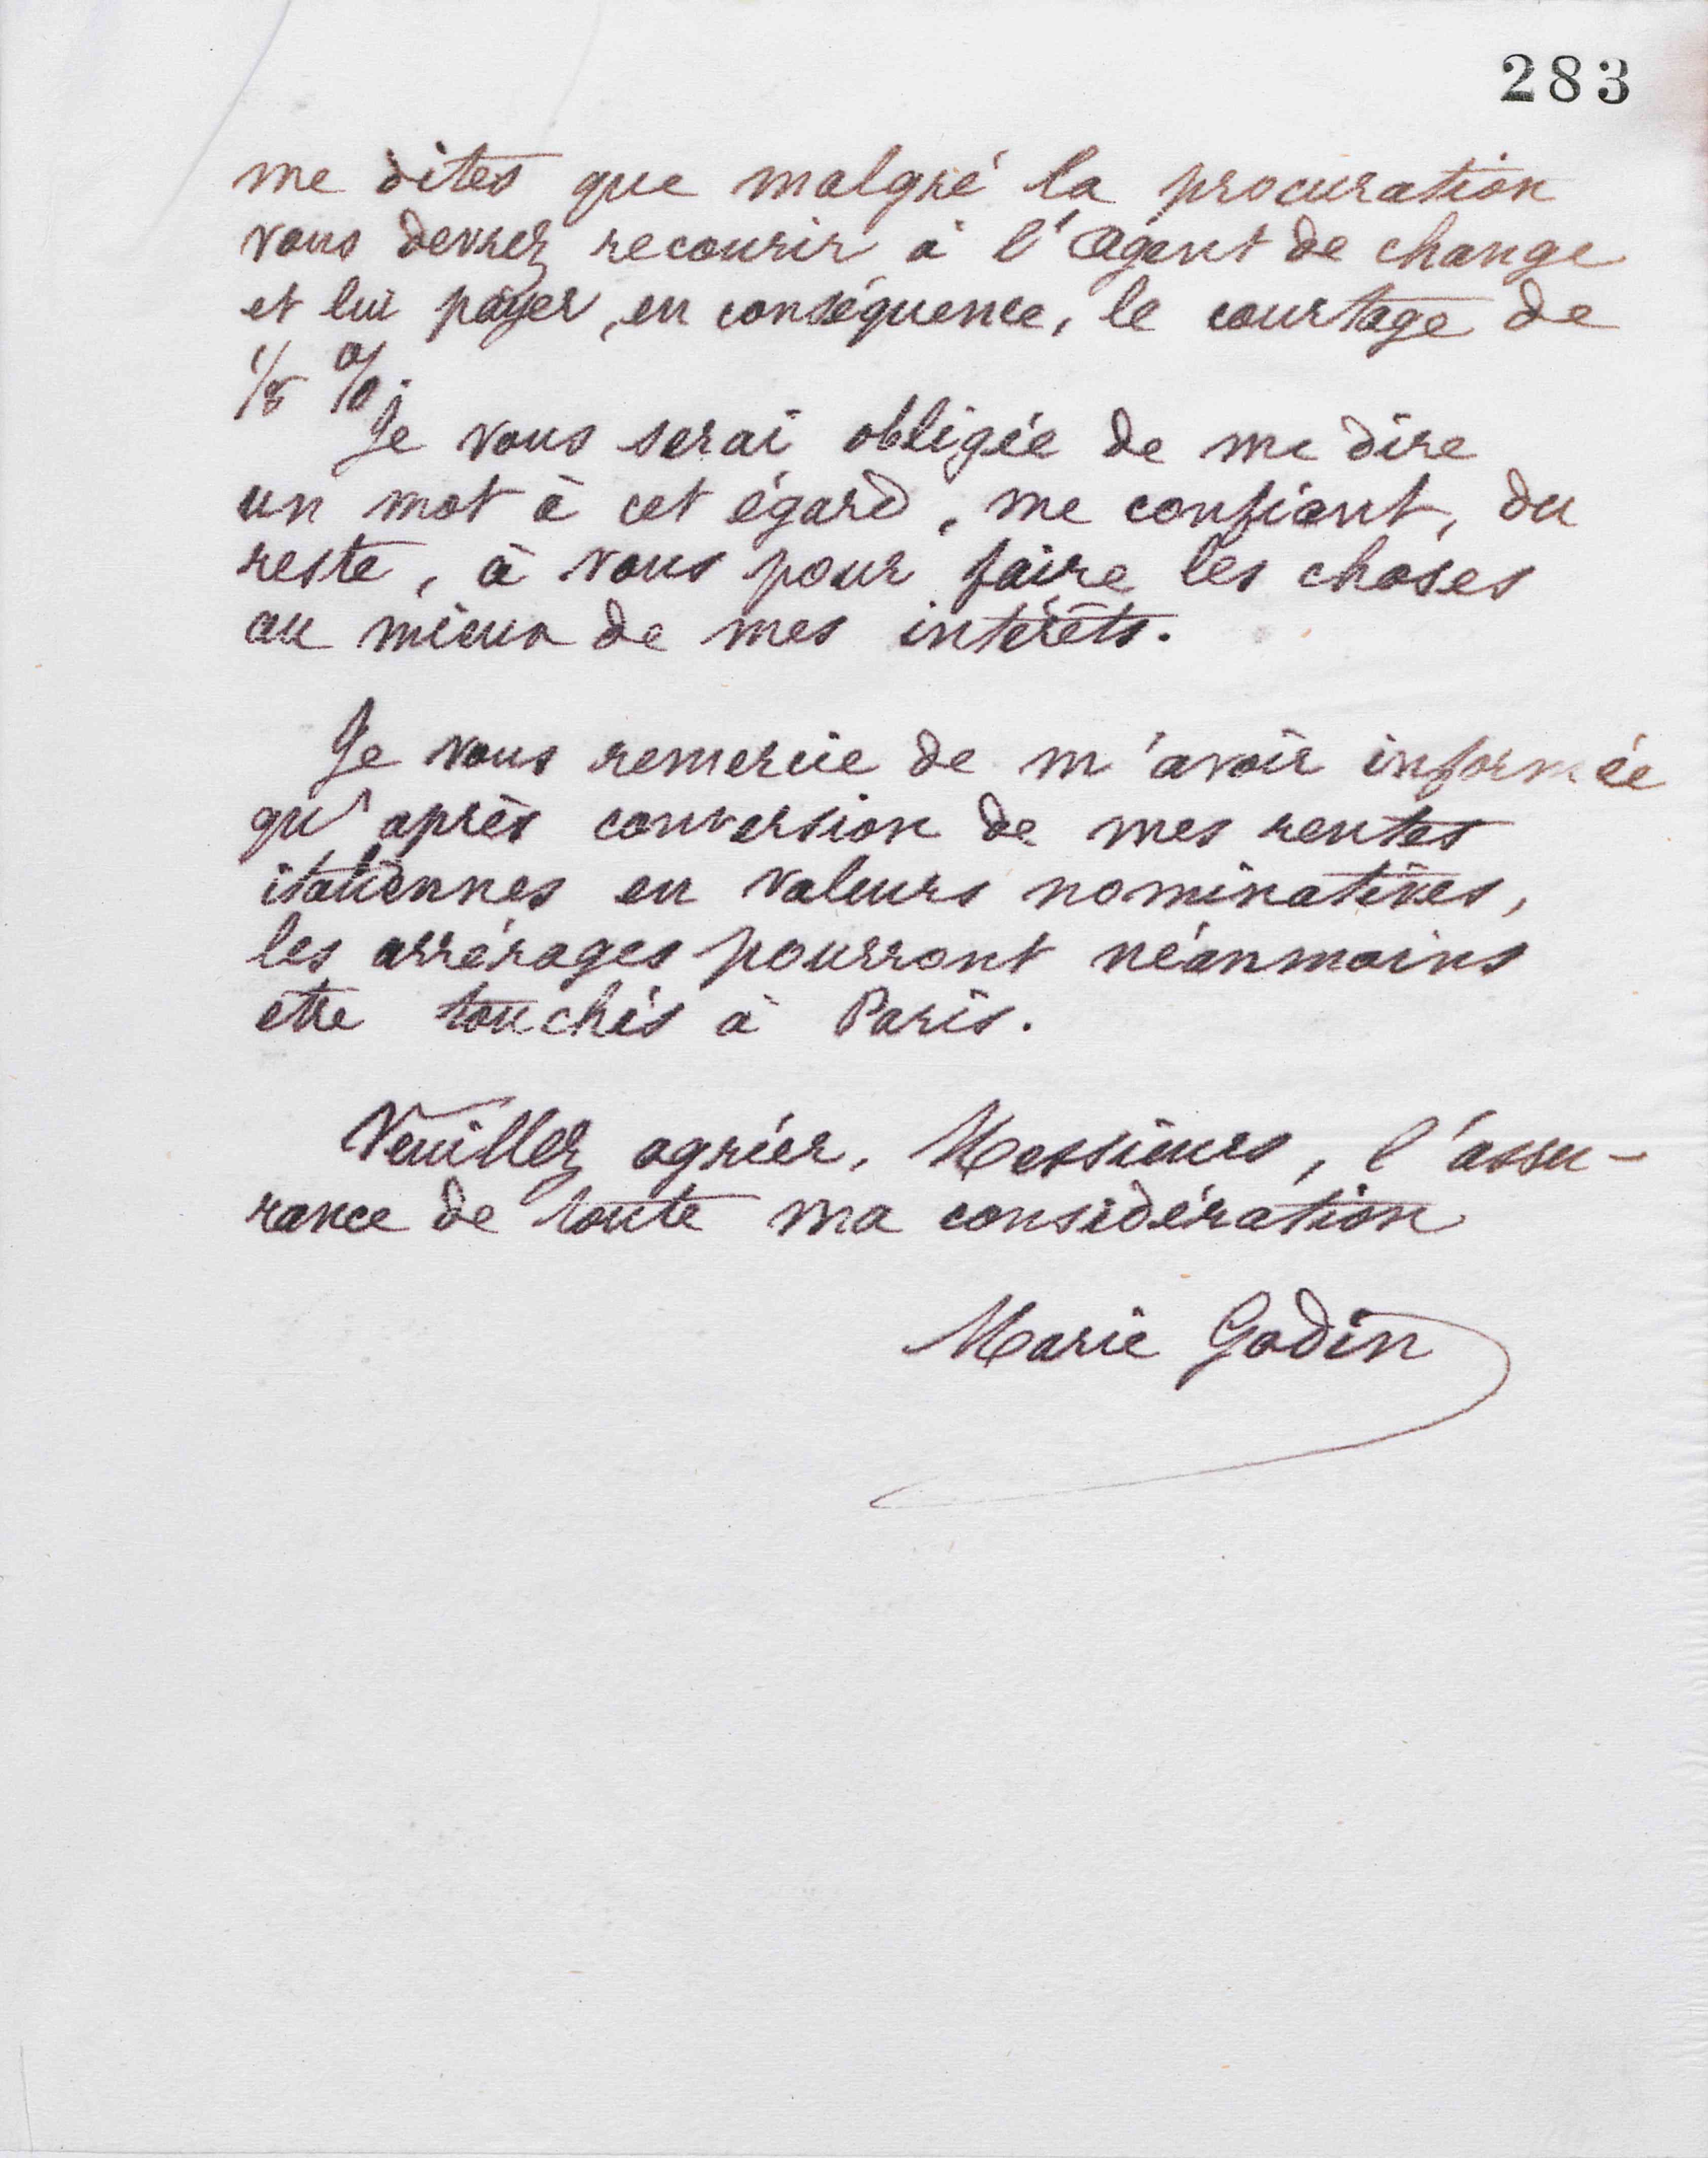 283
me dites que malgré la procuration
vous devrez recourir à l'agent de change
et lui payer, en conséquence, le courtage de
1/8 %.
Je vous serai obligée de me dire
un mot à cet égard, me confiant, du
reste, à vous pour faire les choses
au mieux de mes intérêts.
Je vous remercie de m'avoir informée
qu'après conversion de mes rentes
italiennes en valeurs nominatives,
les arrérages pourront néanmoins
être touchés à Paris.
Veuillez agréer, Messieurs, l'assu-
rance de toute ma considération
Marie Godin